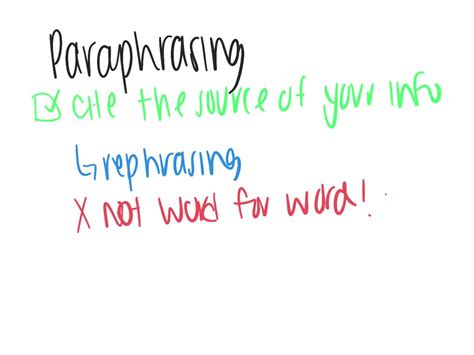 Paraphrasing
☑ cite the source of your info
↳ rephrasing
X not word for word!